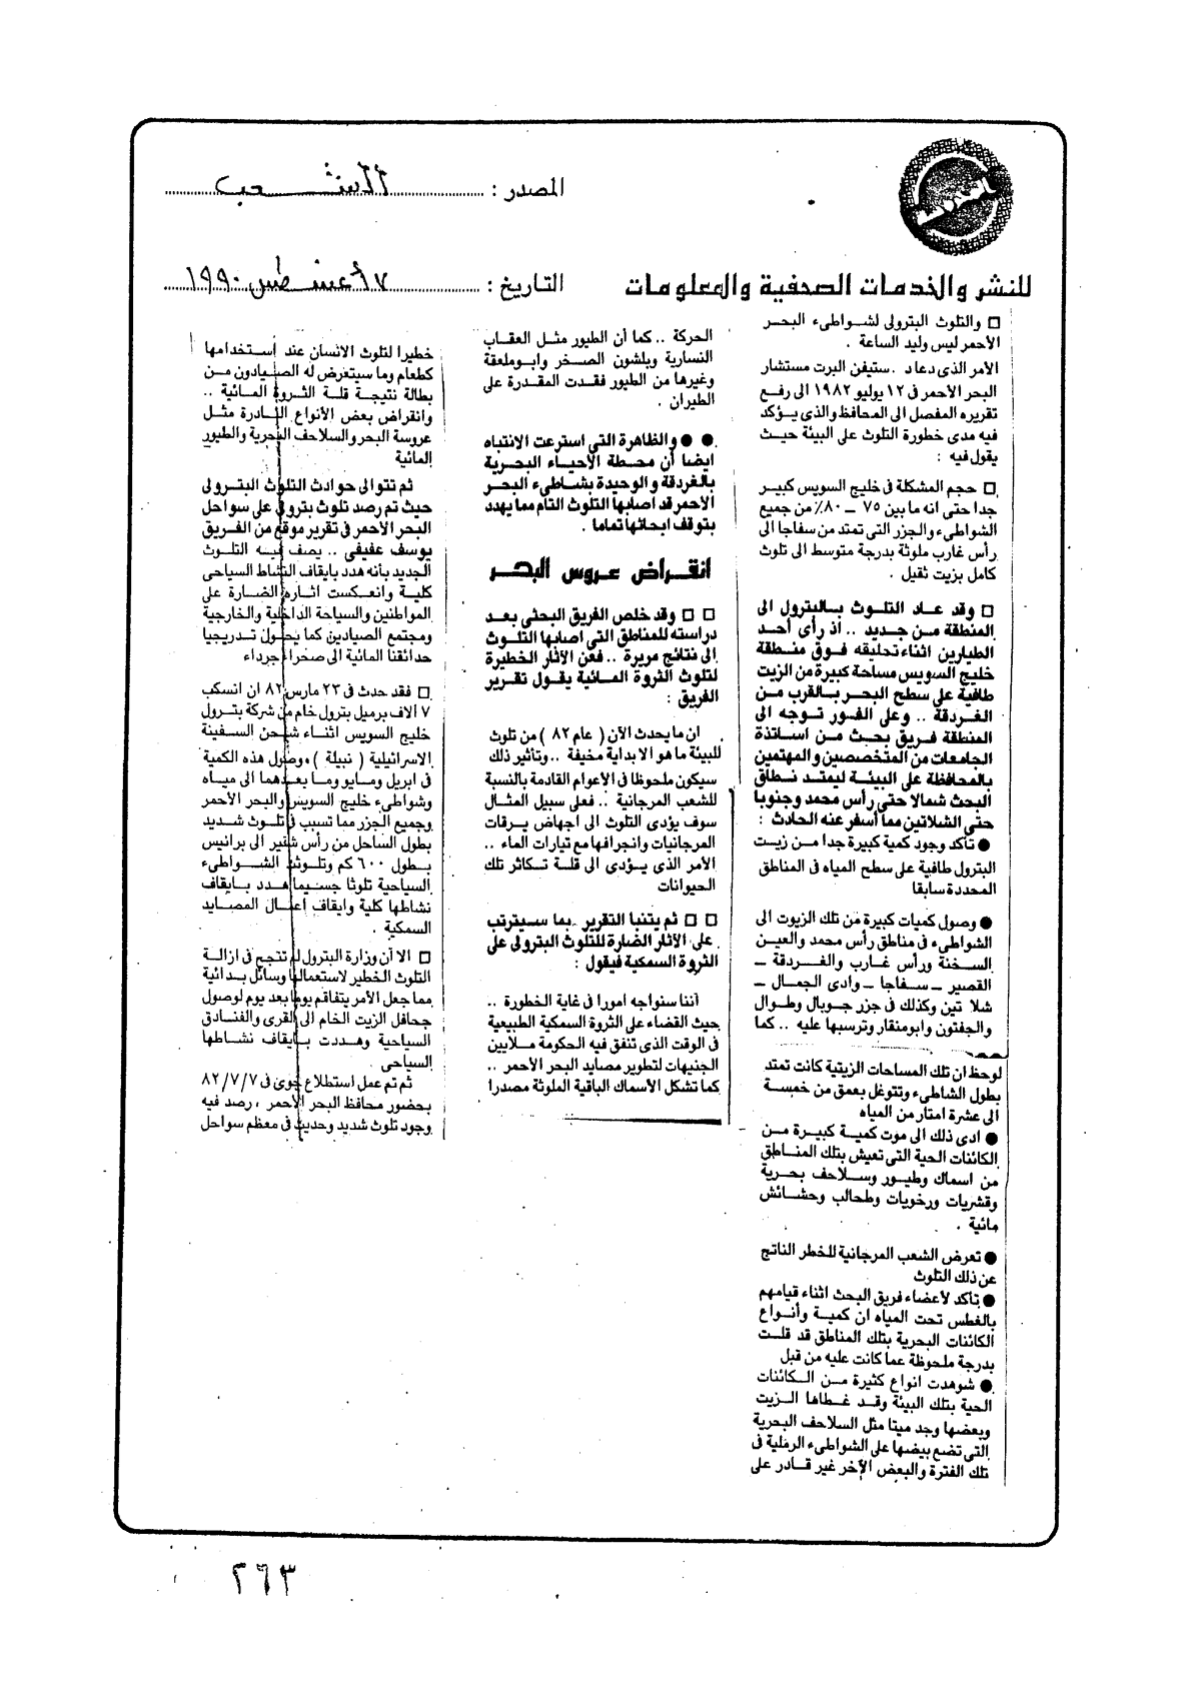 المصدر : الشعب
للنشر والخدمات الصحفية والمعلومات
التاريخ : ١٧ أغسطس ١٩٩٠
□ والتلوث البترولى لشواطىء البحر
الأحمر ليس وليد الساعة .
الأمر الذى دعا د . ستيفن البرت مستشار
البحر الأحمر فى ١٢ يوليو ١٩٨٢ الى رفع
تقريره المفصل الى المحافظ والذى يؤكد
فيه مدى خطورة التلوث على البيئة حيث
يقول فيه :
□ حجم المشكلة فى خليج السويس كبير
جدا حتى انه ما بين ٧٥ ــ ٨٠٪ من جميع
الشواطىء والجزر التى تمتد من سفاجا الى
رأس غارب ملوثة بدرجة متوسط الى تلوث
كامل بزيت ثقيل .
□ وقد عاد التلوث بالبترول الى
المنطقة من جديد .. اذ رأى أحد
الطيارين اثناء تحليقه فوق منطقة
خليج السويس مساحة كبيرة من الزيت
طافية على سطح البحر بالقرب من
الغردقة .. وعلى الفور توجه الى
المنطقة فريق بحث من اساتذة
الجامعات من المتخصصين والمهتمين
بالمحافظة على البيئة ليمتد نطاق
البحث شمالا حتى رأس محمد وجنوبا
حتى الشلاتين مما أسفر عنه الحادث :
● تأكد وجود كمية كبيرة جدا من زيت
البترول طافية على سطح المياه فى المناطق
المحددة سابقا
● وصول كميات كبيرة من تلك الزيوت الى
الشواطىء فى مناطق رأس محمد والعين
السخنة ورأس غارب والغردقة ــ
القصير ــ سفاجا ــ وادى الجمال ــ
شلا تين وكذلك فى جزر جوبال وطوال
والجفتون وابومنقار وترسبها عليه .. كما
لوحظ ان تلك المساحات الزيتية كانت تمتد
بطول الشاطىء وتتوغل بعمق من خمسة
الى عشرة امتار من المياه
● ادى ذلك الى موت كمية كبيرة من
الكائنات الحية التى تعيش بتلك المناطق
من اسماك وطيور وسلاحف بحرية
وقشريات ورخويات وطحالب وحشائش
مائية .
● تعرض الشعب المرجانية للخطر الناتج
عن ذلك التلوث
● تأكد لأعضاء فريق البحث اثناء قيامهم
بالغطس تحت المياه ان كمية وأنواع
الكائنات البحرية بتلك المناطق قد قلت
بدرجة ملحوظة عما كانت عليه من قبل
● شوهدت انواع كثيرة من الكائنات
الحية بتلك البيئة وقد غطاها الزيت
وبعضها وجد ميتا مثل السلاحف البحرية
التى تضع بيضها على الشواطىء الرملية فى
تلك الفترة والبعض الآخر غير قادر على
الحركة .. كما أن الطيور مثل العقاب
النسارية وبلشون الصخر وابوملعقة
وغيرها من الطيور فقدت المقدرة على
الطيران .
● ● والظاهرة التى استرعت الانتباه
ايضا أن محطة الأحياء البحرية
بالغردقة والوحيدة بشاطىء البحر
الاحمر قد اصابها التلوث التام مما يهدد
بتوقف ابحاثها تماما .
انقراض عروس البحر
□ □ وقد خلص الفريق البحثى بعد
دراسته للمناطق التى اصابها التلوث
الى نتائج مريرة .. فعن الآثار الخطيرة
لتلوث الثروة المائية يقول تقرير
الفريق :
ان ما يحدث الآن ( عام ٨٢ ) من تلوث
للبيئة ما هو الا بداية مخيفة .. وتأثير ذلك
سيكون ملحوظا فى الأعوام القادمة بالنسبة
للشعب المرجانية .. فعلى سبيل المثال
سوف يؤدى التلوث الى اجهاض يرقات
المرجانيات وانجرافها مع تيارات الماء ..
الأمر الذى يؤدى الى قلة تكاثر تلك
الحيوانات
□ □ ثم يتنبا التقرير بما سيترتب
على الآثار الضارة للتلوث البترولى على
الثروة السمكية فيقول :
أننا سنواجه امورا فى غاية الخطورة ..
حيث القضاء على الثروة السمكية الطبيعية
فى الوقت الذى تنفق فيه الحكومة ملايين
الجنيهات لتطوير مصايد البحر الأحمر ..
كما تشكل الأسماك الباقية الملوثة مصدرا
خطيرا لتلوث الانسان عند إستخدامها
كطعام وما سيتعرض له الصيادون من
بطالة نتيجة قلة الثروة المائية ..
وانقراض بعض الأنواع النادرة مثل
عروسة البحر والسلاحف البحرية والطيور
المائية
ثم تتوالى حوادث التلوث البترولى
حيث تم رصد تلوث بترولى على سواحل
البحر الأحمر فى تقرير موقع من الفريق
يوسف عفيفى .. يصف فيه التلوث
الجديد بأنه هدد بايقاف النشاط السياحى
كلية وانعكست اثاره الضارة على
المواطنين والسياحة الداخلية والخارجية
ومجتمع الصيادين كما يحول تدريجيا
حدائقنا المائية الى صحراء جرداء
□ فقد حدث فى ٢٣ مارس ٨٢ ان انسكب
٧ آلاف برميل بترول خام من شركة بترول
خليج السويس اثناء شحن السفينة
الاسرائيلية ( نبيلة ) ، وصول هذه الكمية
فى ابريل ومايو وما بعدهما الى مياه
وشواطىء خليج السويس والبحر الأحمر
وجميع الجزر مما تسبب فى تلوث شديد
بطول الساحل من رأس شقير الى برانيس
بطول ٦٠٠ كم وتلوثت الشواطىء
السياحية تلوثا جسيما هدد بايقاف
نشاطها كلية وايقاف اعمال المصايد
السمكية .
□ الا أن وزارة البترول لم تنجح فى ازالة
التلوث الخطير لاستعمالها وسائل بدائية
مما جعل الأمر يتفاقم يوما بعد يوم لوصول
جحافل الزيت الخام الى القرى والفنادق
السياحية وهددت بايقاف نشاطها
السياحى .
ثم تم عمل استطلاع جوى فى ٨٢/٧/٧
بحضور محافظ البحر الأحمر ، رصد فيه
وجود تلوث شديد وحديث فى معظم سواحل
٢٦٣